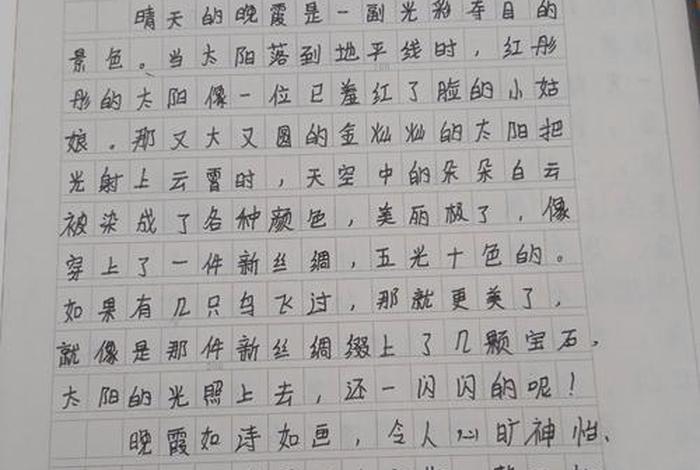 晴天的晚霞是一副光彩夺目的
景色。当太阳落到地平线时，红彤
彤的太阳像一位已羞红了脸的小姑
娘。那又大又圆的金灿灿的太阳把
光射上云霄时，天空中的朵朵白云
被染成了各种颜色，美丽极了，像
穿上了一件新丝绸，五光十色的。
如果有几只鸟飞过，那就更美了，
就像是那件新丝绸缀上了几颗宝石，
太阳的光照上去，还一闪闪的呢！
晚霞如诗如画，令人心旷神怡、